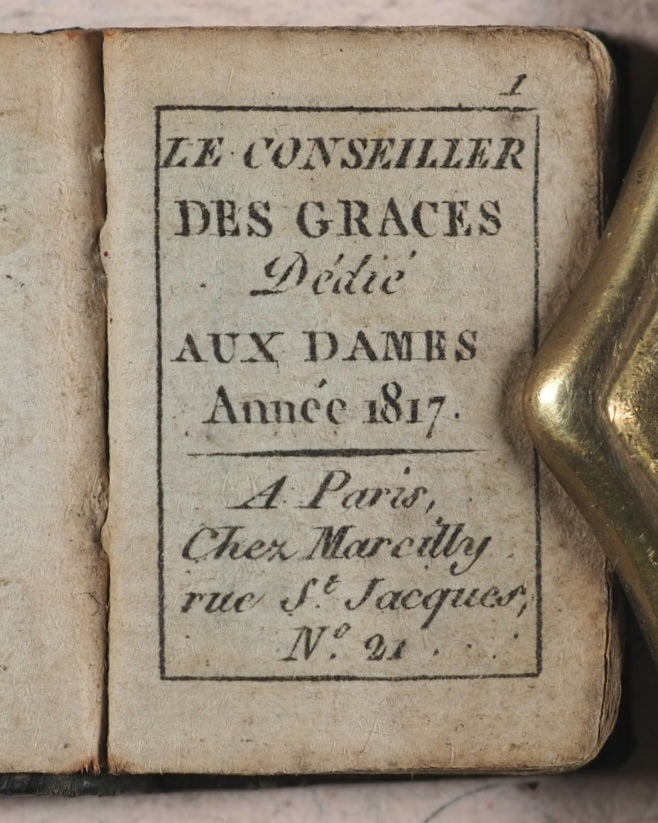 1
LE CONSEILLER
DES GRACES
Dédié
AUX DAMES
Année 1817.
A Paris,
Chez Marcilly
rue S.t Jacques,
N.o 21.